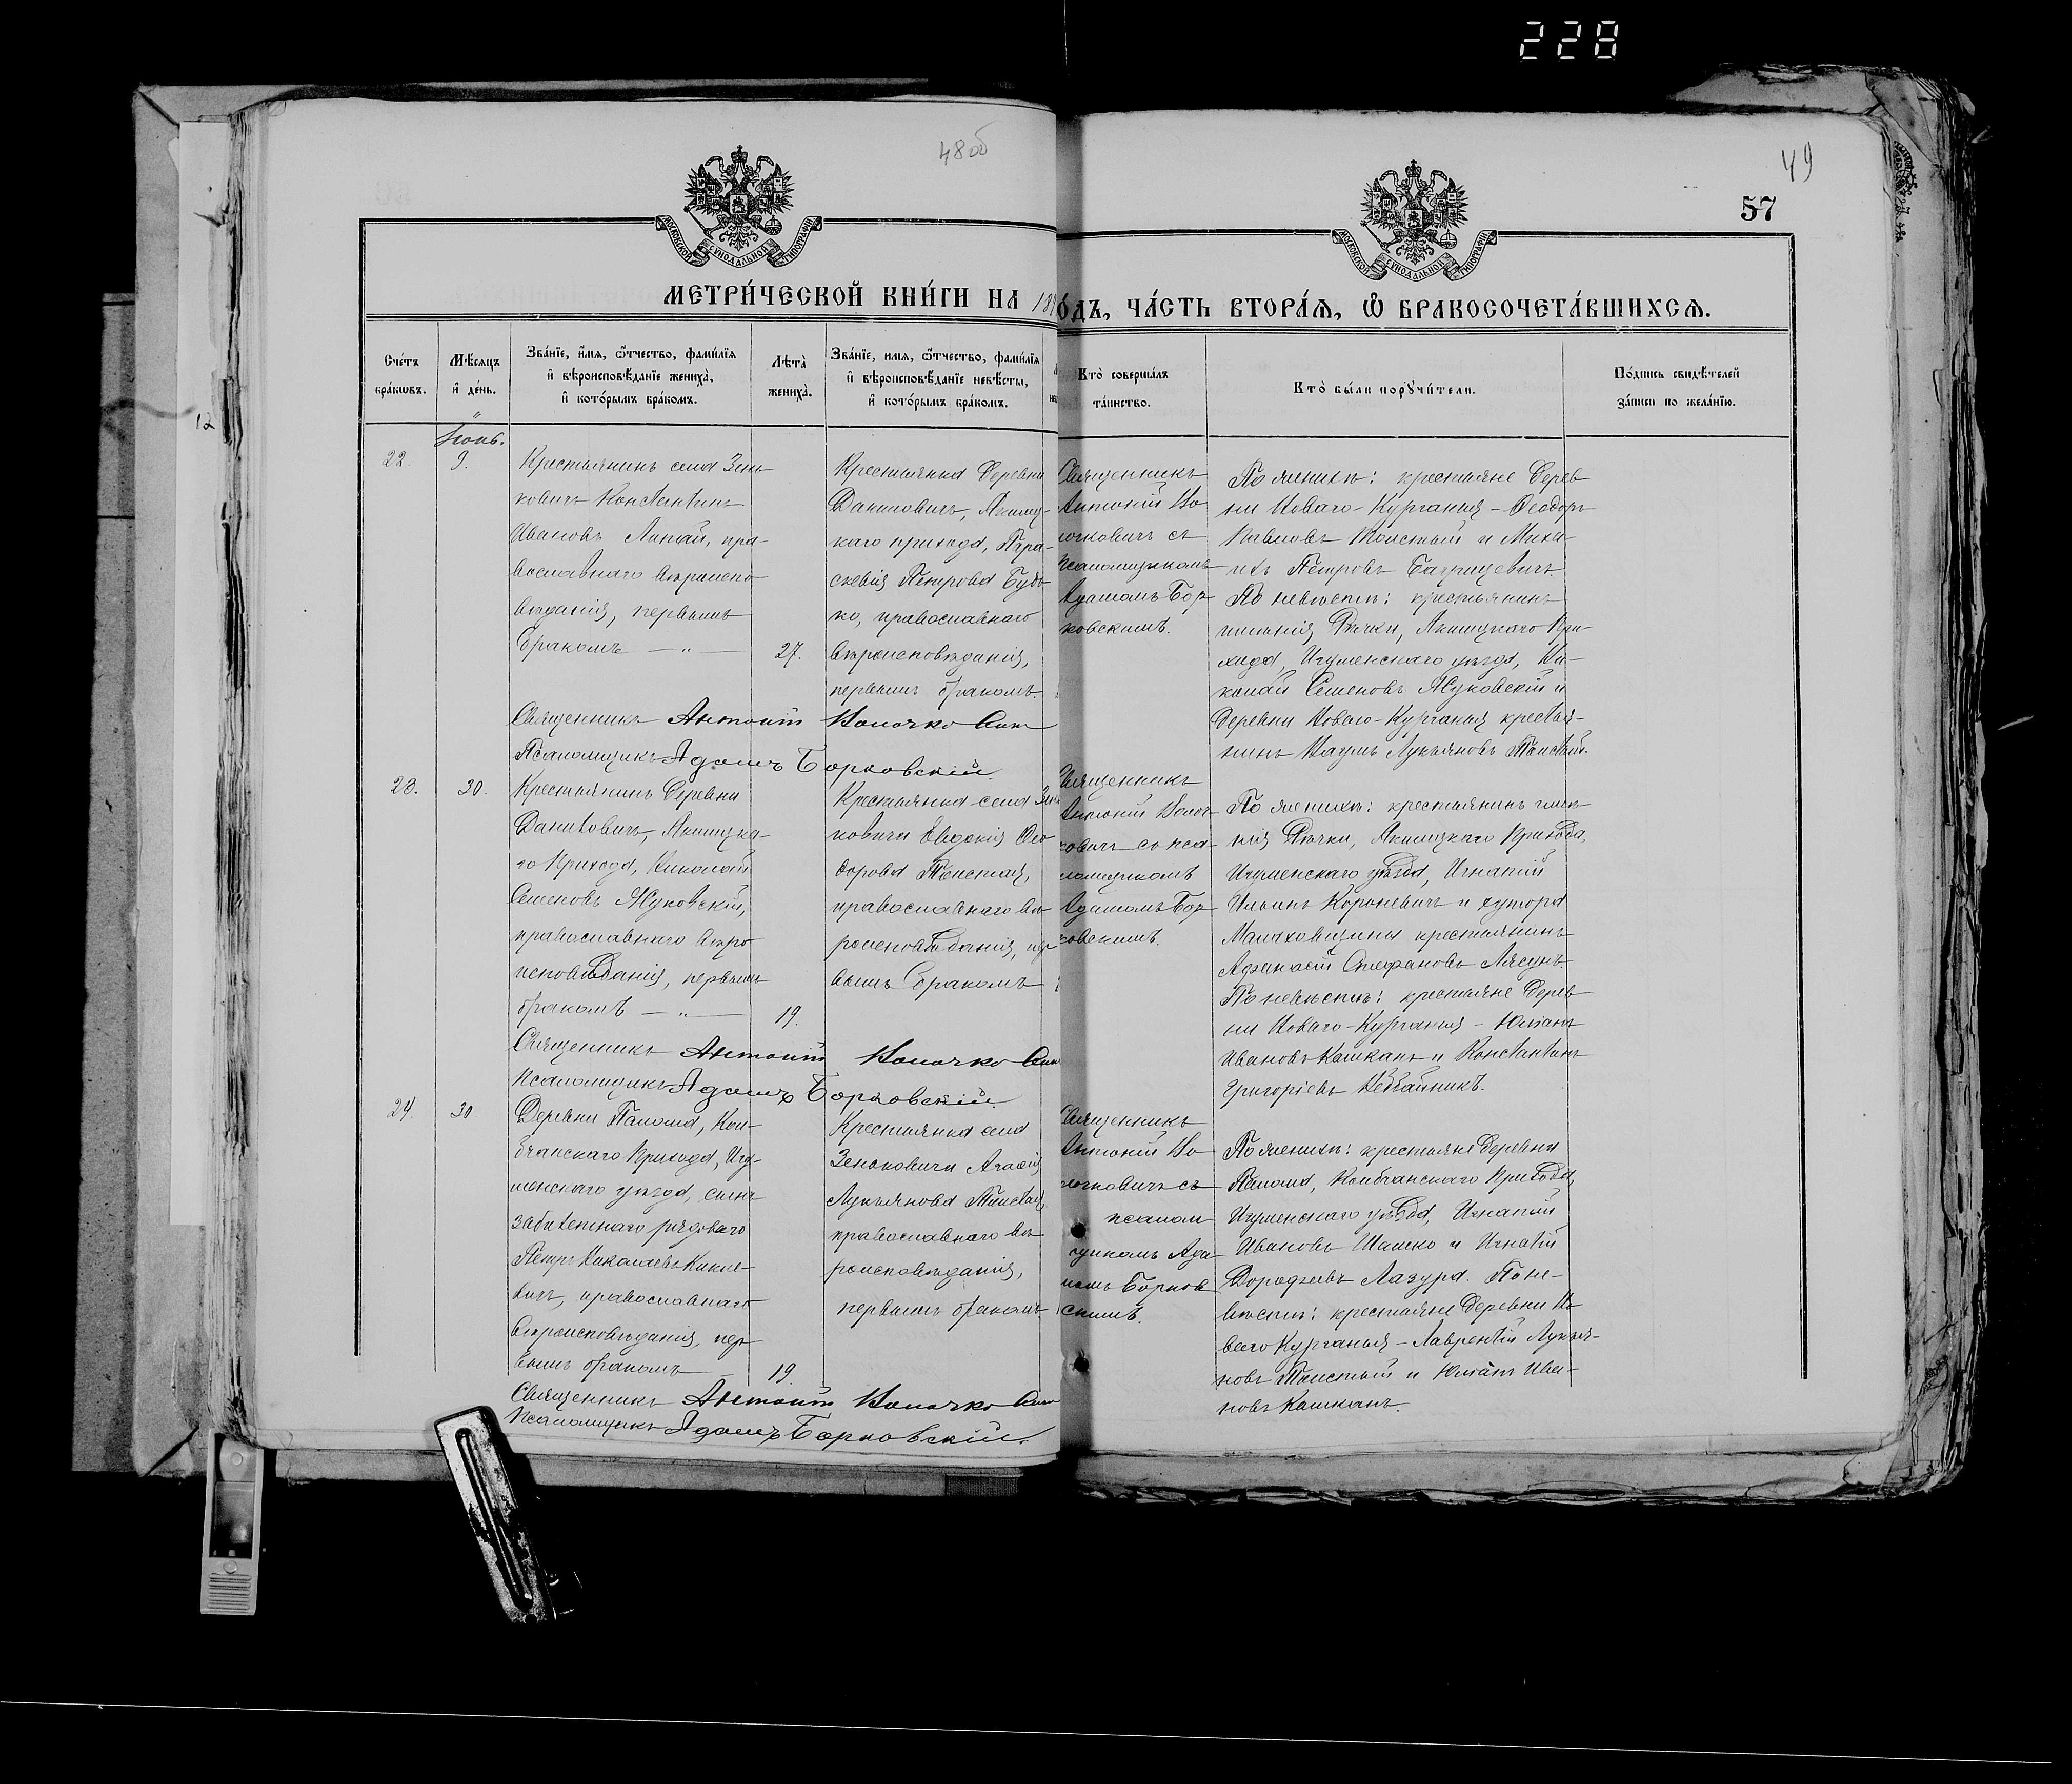 228
48об
49
57
МОСКОВСКОЙ СѴНОДАЛЬНОЙ ТИПОГРАФІИ
МОСКОВСКОЙ СѴНОДАЛЬНОЙ ТИПОГРАФІИ
МЕТРИ́ЧЕСКОЙ КНИ́ГИ НА 189
ОДЪ, ЧА́СТЬ ВТОРА́Я, Ѽ БРАКОСОЧЕТА́ВШИХСЯ.
Сче́тъ бра́ковъ.
Мѣ́сяцъ и҆ де́нь.
Зва́нїе, и҆́мя, ѻ҆́тчество, фами́лїя и҆ вѣроисповѣ́данїе жениха̀, и҆ кото́рымъ бра́комъ.
Лѣ́та жениха̀.
Зва́нїе, имя, ѻ҆́тчество, фами́лїя и҆ вѣроисповѣ́данїе невѣ́сты, и҆ кото́рымъ бра́комъ.
Кто̀ соверша́лъ та́инство.
Кто̀ бы́ли порꙋчи́тели.
По́дпись свидѣ́телей за́писи по жела́нїю.
12
Іюнь.
22. 9.
Крестьянинъ села Зень-
ковичъ Константинъ
Ивановъ Лапай, пра-
вославнаго вѣроиспо-
вѣданія, первымъ
бракомъ — " — 27.
Крестьянка деревни
Даниловичъ, Якшиц-
каго прихода, Пара-
скевія Петрова Будь-
ко, православнаго
вѣроисповѣданія,
первымъ бракомъ
Священникъ
Антоній Во
лочковичъ съ
псаломщикомъ
Адамомъ Бор
ковскимъ.
По женихѣ: крестьяне дерев
ни Новаго-Курганья – Ѳеодоръ
Павловъ Толстый и Миха-
илъ Петровъ Багрицевичъ.
По невѣстѣ: крестьянинъ
имѣнія Рѣчки, Якшицкаго при-
хода, Игуменскаго уѣзда, Ни-
колай Семеновъ Жуковскій и
деревни Новаго-Курганья крестья-
нинъ Наумъ Лукьяновъ Толстый.
Священникъ Антоній
Псаломщикъ Адамъ Борковскій.
23. 30.
Крестьянинъ деревни
Даниловичъ, Якшицка-
го прихода, Николай
Семеновъ Жуковскій,
православнаго вѣро
исповѣданія, первымъ
бракомъ — " — 19.
Крестьянка села Зень
ковичи Евдокія Ѳео
дорова Толстая,
православнаго вѣ
роисповѣданія, пер
вымъ бракомъ
Священникъ
Антоній Волоч
ковичъ съ пса-
ломщикомъ
Адамомъ Бор
ковскимъ.
По женихѣ: крестьянинъ имѣ
нія Рѣчки, Якшицкаго прихода,
Игуменскаго уѣзда, Игнатій
Ильинъ Короневичъ и хутора
Малаховщины крестьянинъ
Аѳанасій Стефановъ Лясунъ.
По невѣстѣ: крестьяне дерев
ни Новаго-Курганья – Юліанъ
Ивановъ Кашканъ и Константинъ
Григоріевъ
Священникъ Антоній
Псаломщикъ Адамъ Борковскій.
24. 30
Деревни Палома, Кол-
бчанскаго прихода, Игу-
менскаго уѣзда, сынъ
рядоваго
Петръ Николаевъ
православнаго
вѣроисповѣданія, пер
вымъ бракомъ — 19.
Крестьянка села
Зеньковичи Агаѳія
Лукьянова Толстая,
православнаго вѣ
роисповѣданія,
первымъ бракомъ.
Священникъ
Антоній Во
лочковичъ съ
псалом
щикомъ Ада
момъ Борков
скимъ.
По женихѣ: крестьяне деревни
Палома, Колбчанскаго прихода,
Игуменскаго уѣзда, Игнатій
Ивановъ Шашко и Игнатій
Дороѳеевъ Лазура. По не-
вѣстѣ: крестьяне деревни Но
ваго Курганья – Лаврентій Лукья-
новъ Толстый и Юліанъ Ива-
новъ Кашканъ.
Священникъ Антоній
Псаломщикъ Адамъ Борковскій.